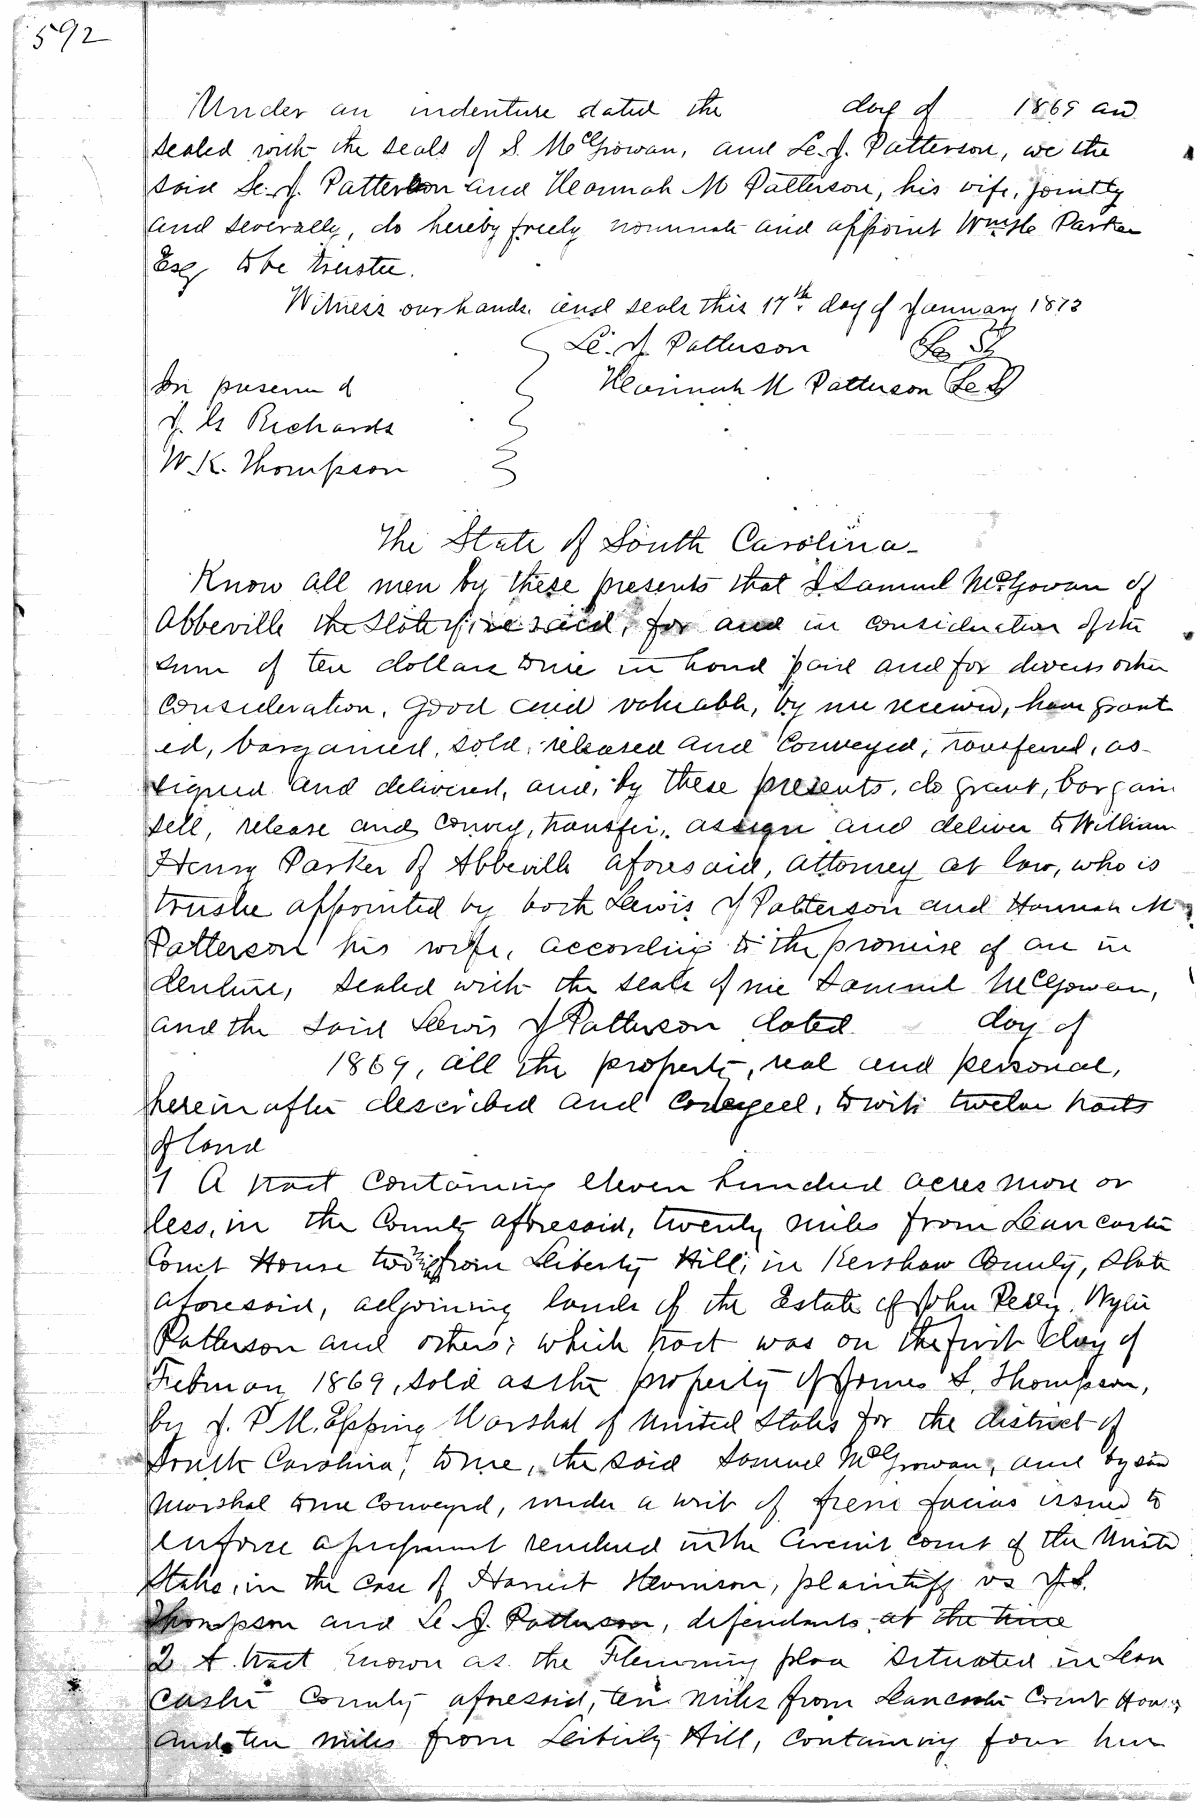 592
Under an indenture dated the day of 1869 and
sealed with the seals of S. McGowan, and L. J. Patterson, we the
said L. J. Patterson and Hannah M Patterson, his wife, jointly
and severally, do hereby freely nominate and appoint Wm H Parker
Esq to be trustee.
Witness our hands and seals this 17th day of January 1873
L. J. Patterson LS
In presence of Hannah M Patterson LS
J. G Richards
W. K. Thompson
The State of South Carolina
Know all men by these presents that I Samuel McGowan of
Abbeville the State aforesaid, for and in consideration of the
sum of ten dollars to me in hand paid and for divers other
consideration, good and valuable, by me received, have grant
ed, bargained, sold, released and conveyed, transferred, as-
signed and delivered, and, by these presents, do grant, bargain
sell, release and convey, transfer, assign and deliver to William
Henry Parker of Abbeville aforesaid, attorney at law, who is
trustee appointed by both Lewis J Patterson and Hannah M
Patterson his wife, according to the promise of an in
denture, sealed with the seals of me Samuel McGowan,
and the said Lewis J Patterson dated day of
1869, all the property, real and personal,
hereinafter described and conveyed, to wit: twelve tracts
of land
1 A tract containing eleven hundred acres more or
less, in the County aforesaid, twenty miles from Lancaster
Court House two miles from Liberty Hill, in Kershaw County, State
aforesaid, adjoining lands of the Estate of John Perry, Wylie
Patterson and others; which tract was on the first day of
February 1869, sold as the property of James S. Thompson,
by J. P M. Epping Marshal of United States for the district of
South Carolina, to me, the said Samuel McGowan, and by said
Marshal to me conveyed, under a writ of fieri facias issued to
enforce a judgment rendered in the Circuit Court of the United
States, in the case of Harriet Harrison, plaintiff vs J. S.
Thompson and L. J. Patterson, defendants at the time
2 A tract known as the Flemming place situated in Lan
caster County aforesaid, ten miles from Lancaster Court House,
and ten miles from Liberty Hill, containing four hun